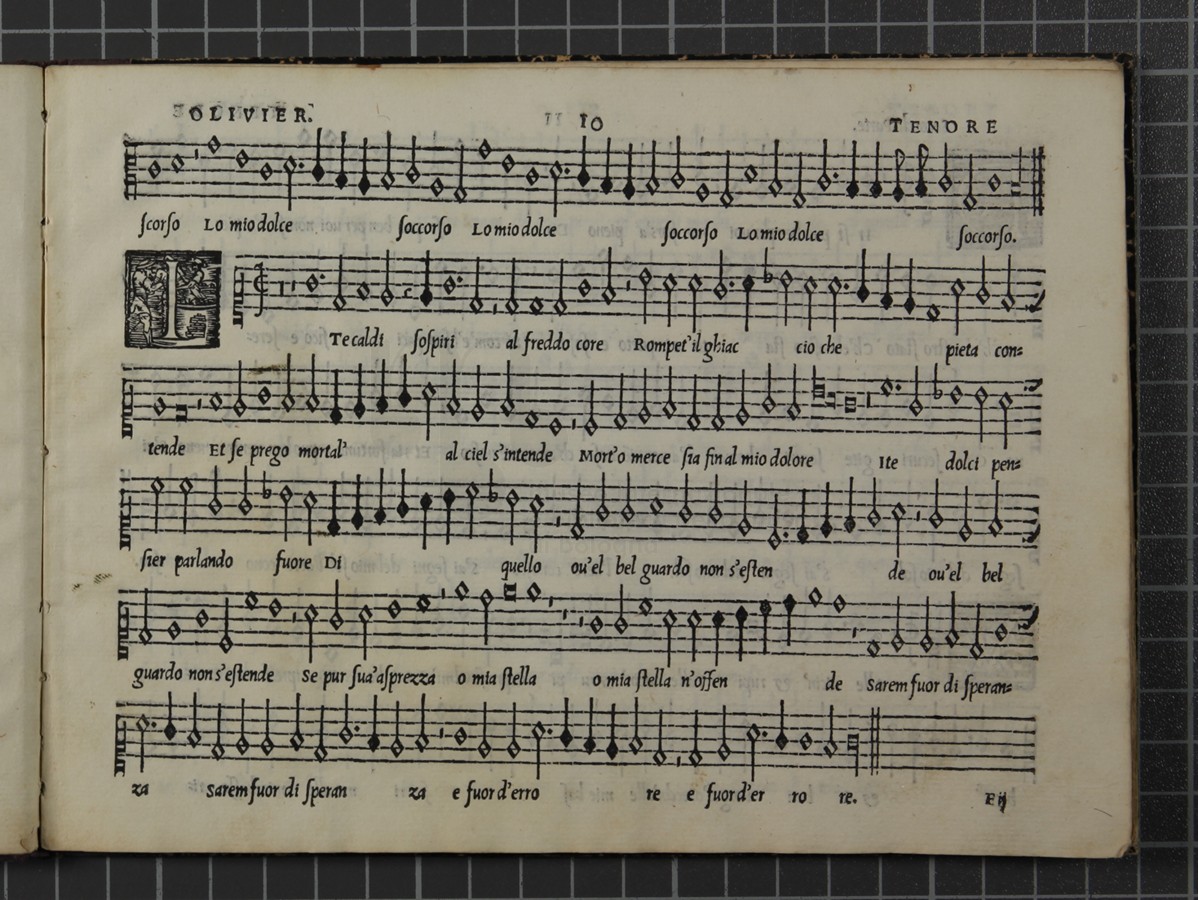 OLIVIER. IO TENORE
ſcorſo Lo mio dolce ſoccorſo Lo mio dolce ſoccorſo Lo mio dolce ſoccorſo.
I Te caldi ſoſpiri al freddo core Rompet'il ghiac cio che pieta con=
tende Et ſe prego mortal' al ciel s'intende Mort'o merce ſia fin al mio dolore Ite dolci pen=
ſier parlando fuore Di quello ou'el bel guardo non s'eſten de ou'el bel
guardo non s'eſtende Se pur ſua'aſprezza o mia ſtella o mia ſtella n'offen de Sarem fuor di ſperan=
za Sarem fuor di ſperan za e fuor d'erro re e fuor d'er ro re.
E ij